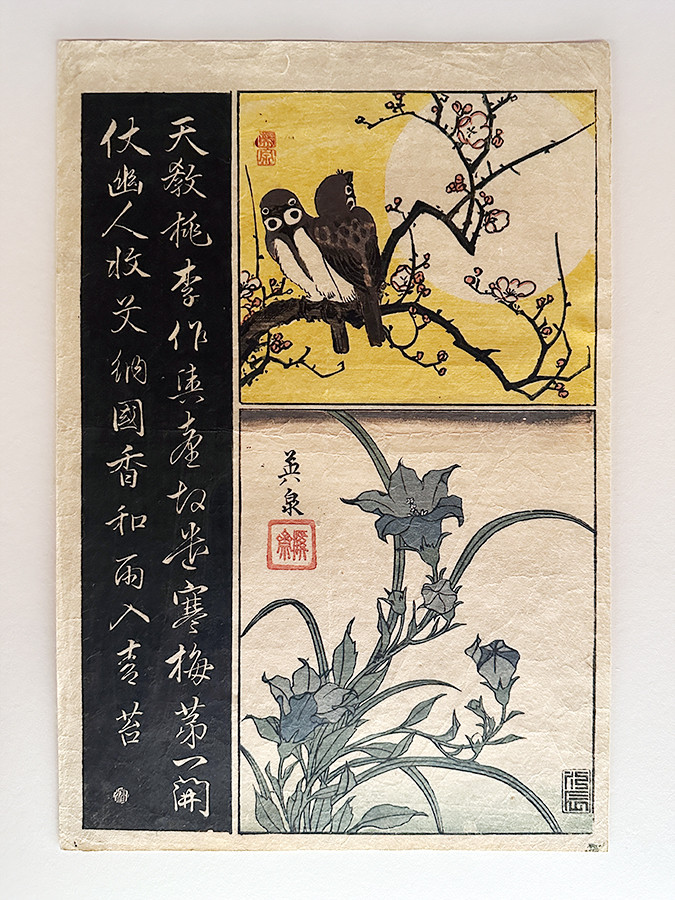 天教桃李作輿臺故遣寒梅第一開
仗幽人收艾納國香和雨入青苔
英泉